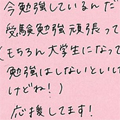 今勉強しているんだ
受験勉強頑張って
(もちろん大学生になって
勉強はしないといい
けどね!)
応援してます!